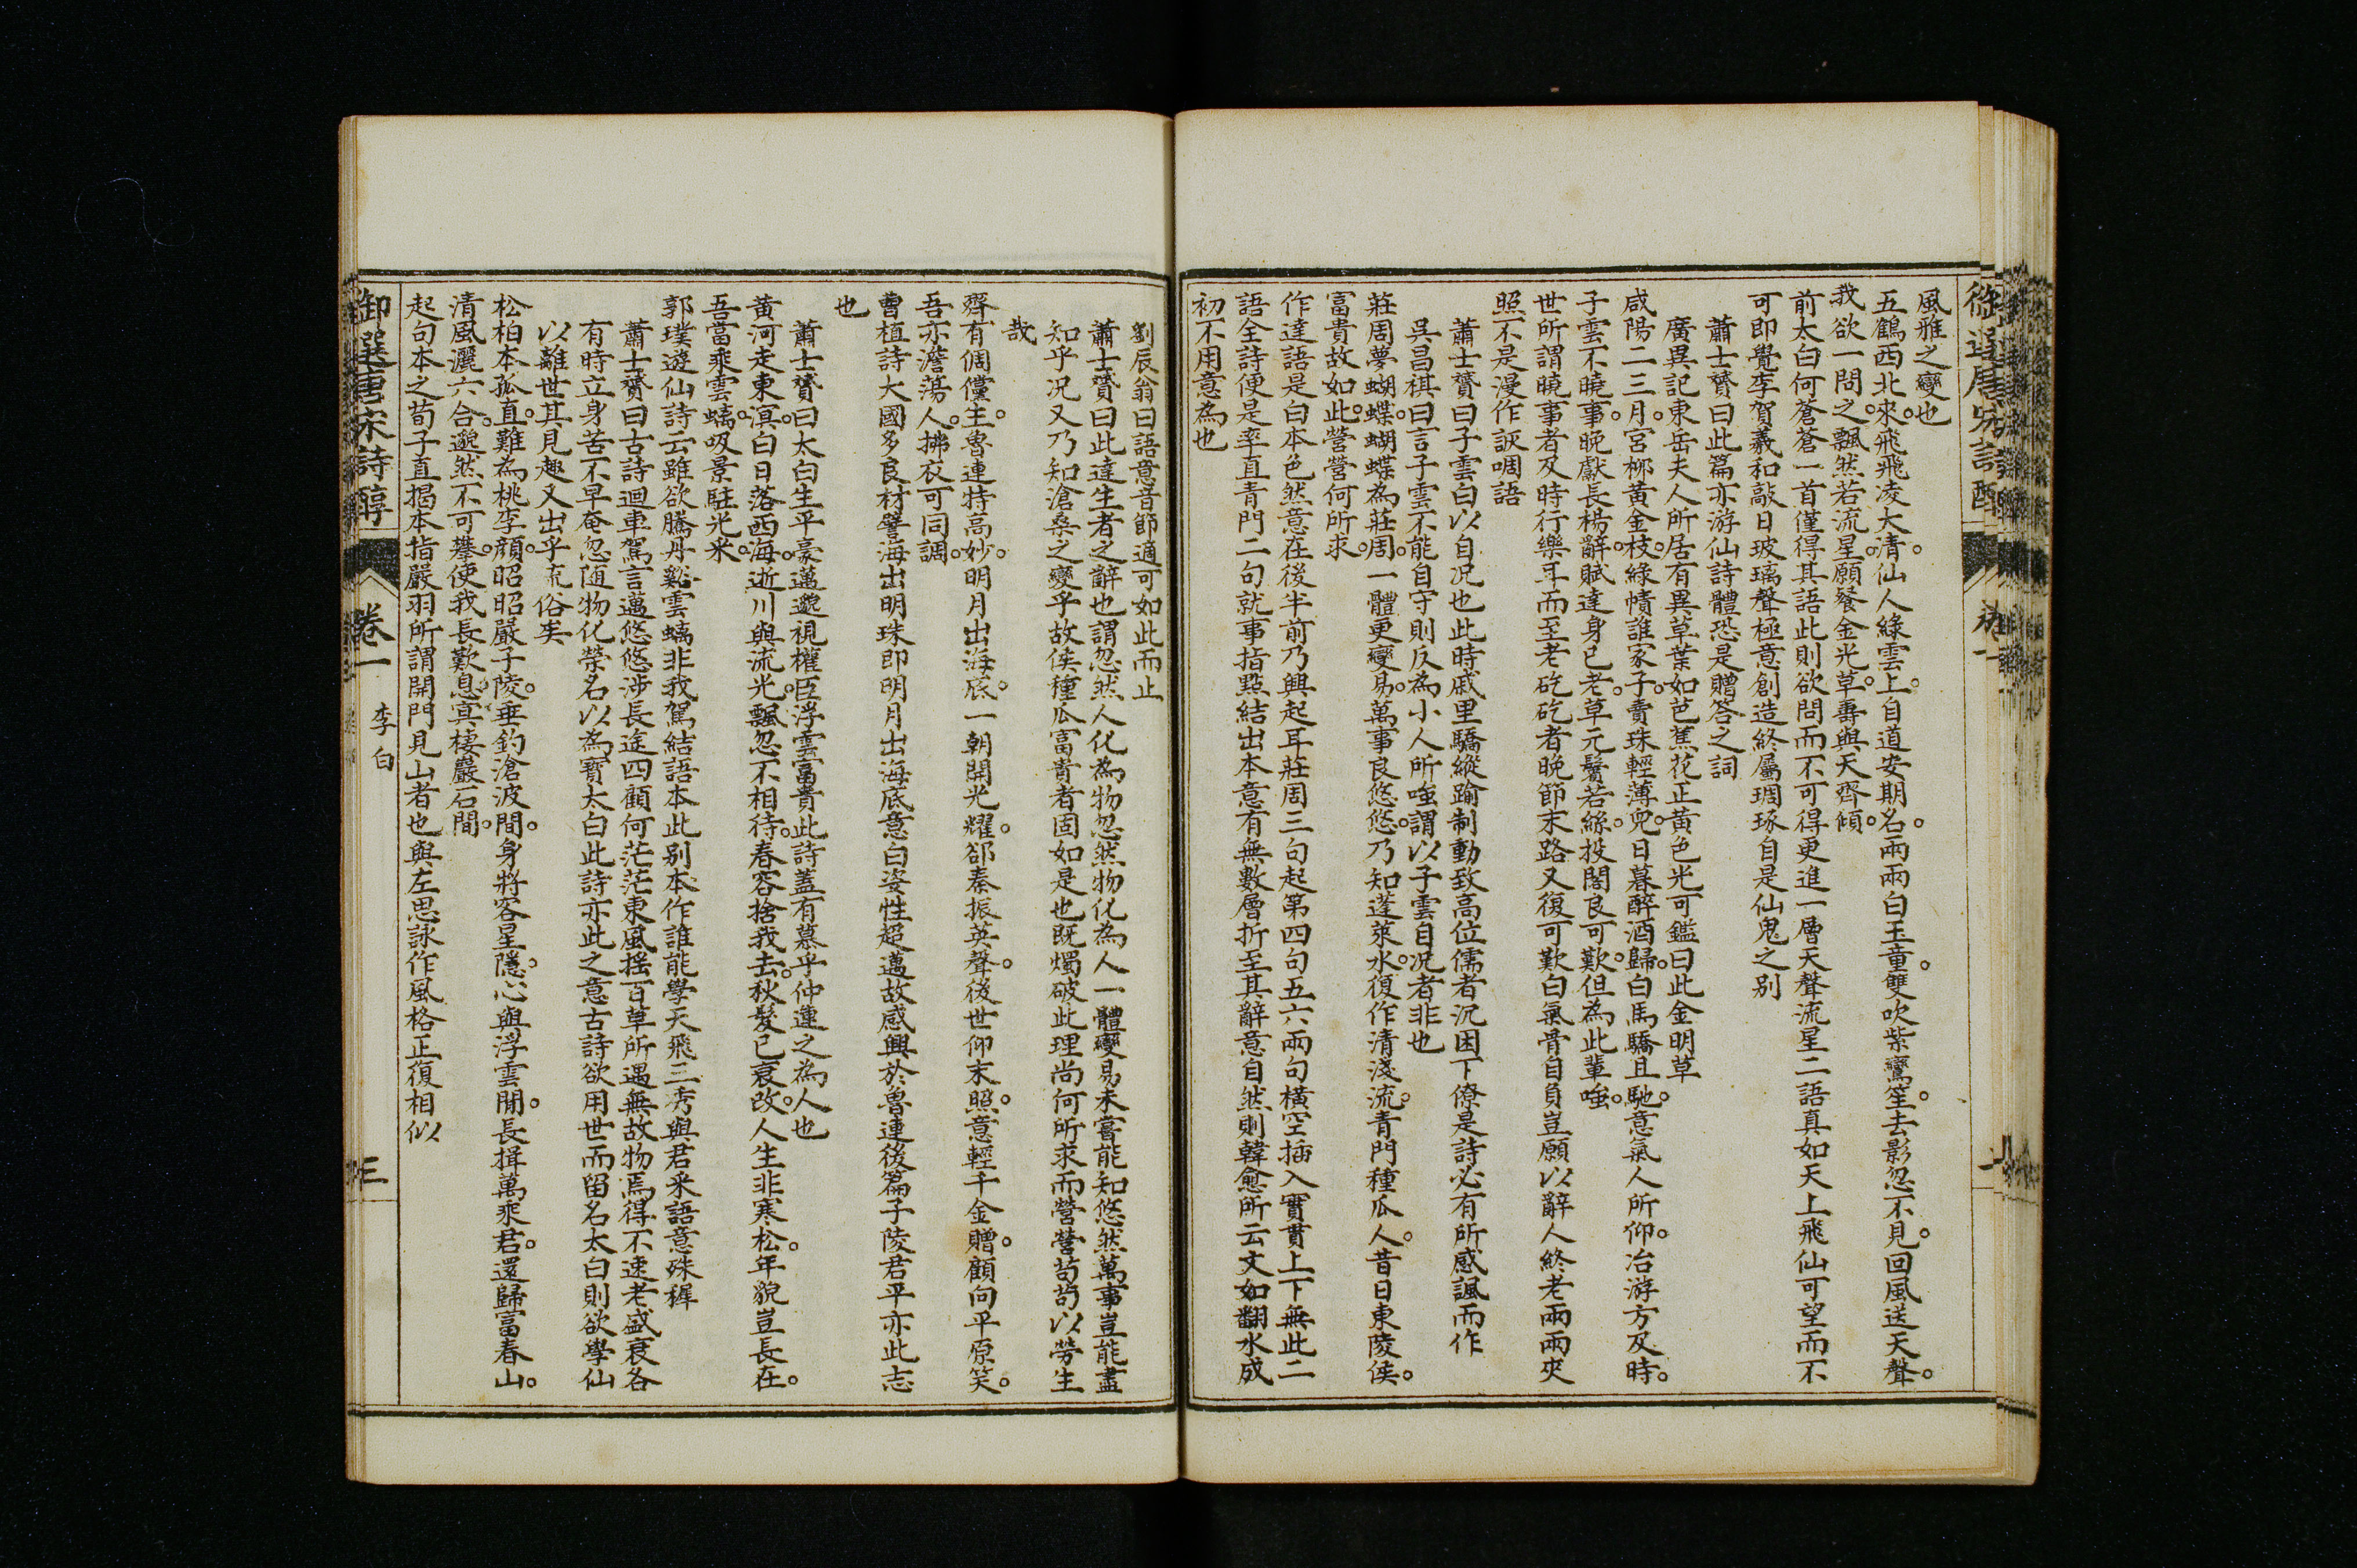 風雅之變也
五鶴西北來。飛飛凌太清。仙人綠雲上。自道安期名。兩兩白玉童。雙吹紫鸞笙。去影忽不見。回風送天聲。
我欲一問之。飄然若流星。願餐金光草。壽與天齊傾。
前太白何蒼蒼一首僅得其語此則欲問而不可得更進一層天聲流星二語真如天上飛仙可望而不
可即覺李賀羲和敲日玻璃聲極意創造終屬琱琢自是仙鬼之別
蕭士贇曰此篇亦游仙詩體恐是贈答之詞
廣異記東岳夫人所居有異草葉如芭蕉花正黃色光可鑑曰此金明草
咸陽二三月。宮柳黃金枝。綠幘誰家子。賣珠輕薄兒。日暮醉酒歸。白馬驕且馳。意氣人所仰。冶游方及時。
子雲不曉事。晚獻長楊辭。賦達身已老。草元鬢若絲。投閣良可歎。但為此輩嗤。
世所謂曉事者及時行樂耳而至老矻矻者晚節末路又復可歎白氣骨自負豈願以辭人終老兩兩夾
照不是漫作詼啁語
蕭士贇曰子雲白以自況也此時戚里驕縱踰制動致高位儒者沉困下僚是詩必有所感諷而作
吳昌祺曰言子雲不能自守則反為小人所嗤謂以子雲自況者非也
莊周夢蝴蝶。蝴蝶為莊周。一體更變易。萬事良悠悠。乃知蓬萊水。復作清淺流。青門種瓜人。昔日東陵侯。
富貴故如此。營營何所求。
作達語是白本色然意在後半前乃興起耳莊周三句起第四句五六兩句橫空插入實貫上下無此二
語全詩便是率直青門二句就事指點結出本意有無數層折至其辭意自然則韓愈所云文如翻水成
初不用意為也
劉辰翁曰語意音節適可如此而止
蕭士贇曰此達生者之辭也謂忽然人化為物忽然物化為人一體變易未嘗能知悠然萬事豈能盡
知乎况又乃知滄桑之變乎故侯種瓜富貴者固如是也既燭破此理尚何所求而營營苟苟以勞生
哉
齊有倜儻生。魯連特高妙。明月出海底。一朝開光耀。郤秦振英聲。後世仰末照。意輕千金贈。顧向平原笑。
吾亦澹蕩人。拂衣可同調。
曹植詩大國多良材譬海出明珠即明月出海底意白姿性超邁故感興於魯連後篇子陵君平亦此志
也
蕭士贇曰太白生平豪邁邈視權臣浮雲富貴此詩蓋有慕乎仲連之為人也
黃河走東溟。白日落西海。逝川與流光。飄忽不相待。春容捨我去。秋髮已衰改。人生非寒松。年貌豈長在。
吾當乘雲螭。吸景駐光采。
郭璞遊仙詩云雖欲騰丹谿雲螭非我駕結語本此別本作誰能學天飛三秀與君采語意殊穉
蕭士贇曰古詩迴車駕言邁悠悠涉長途四顧何茫茫東風搖百草所遇無故物焉得不速老盛衰各
有時立身苦不早奄忽隨物化榮名以為寶太白此詩亦此之意古詩欲用世而留名太白則欲學仙
以離世其見趣又出乎流俗矣
松柏本孤直。難為桃李顏。昭昭嚴子陵。垂釣滄波間。身將客星隱。心與浮雲閒。長揖萬乘君。還歸富春山。
清風灑六合。邈然不可攀。使我長歎息。冥棲巖石間。
起句本之荀子直揭本指嚴羽所謂開門見山者也與左思詠作風格正復相似
御選唐宋詩醇 卷一 李白 三